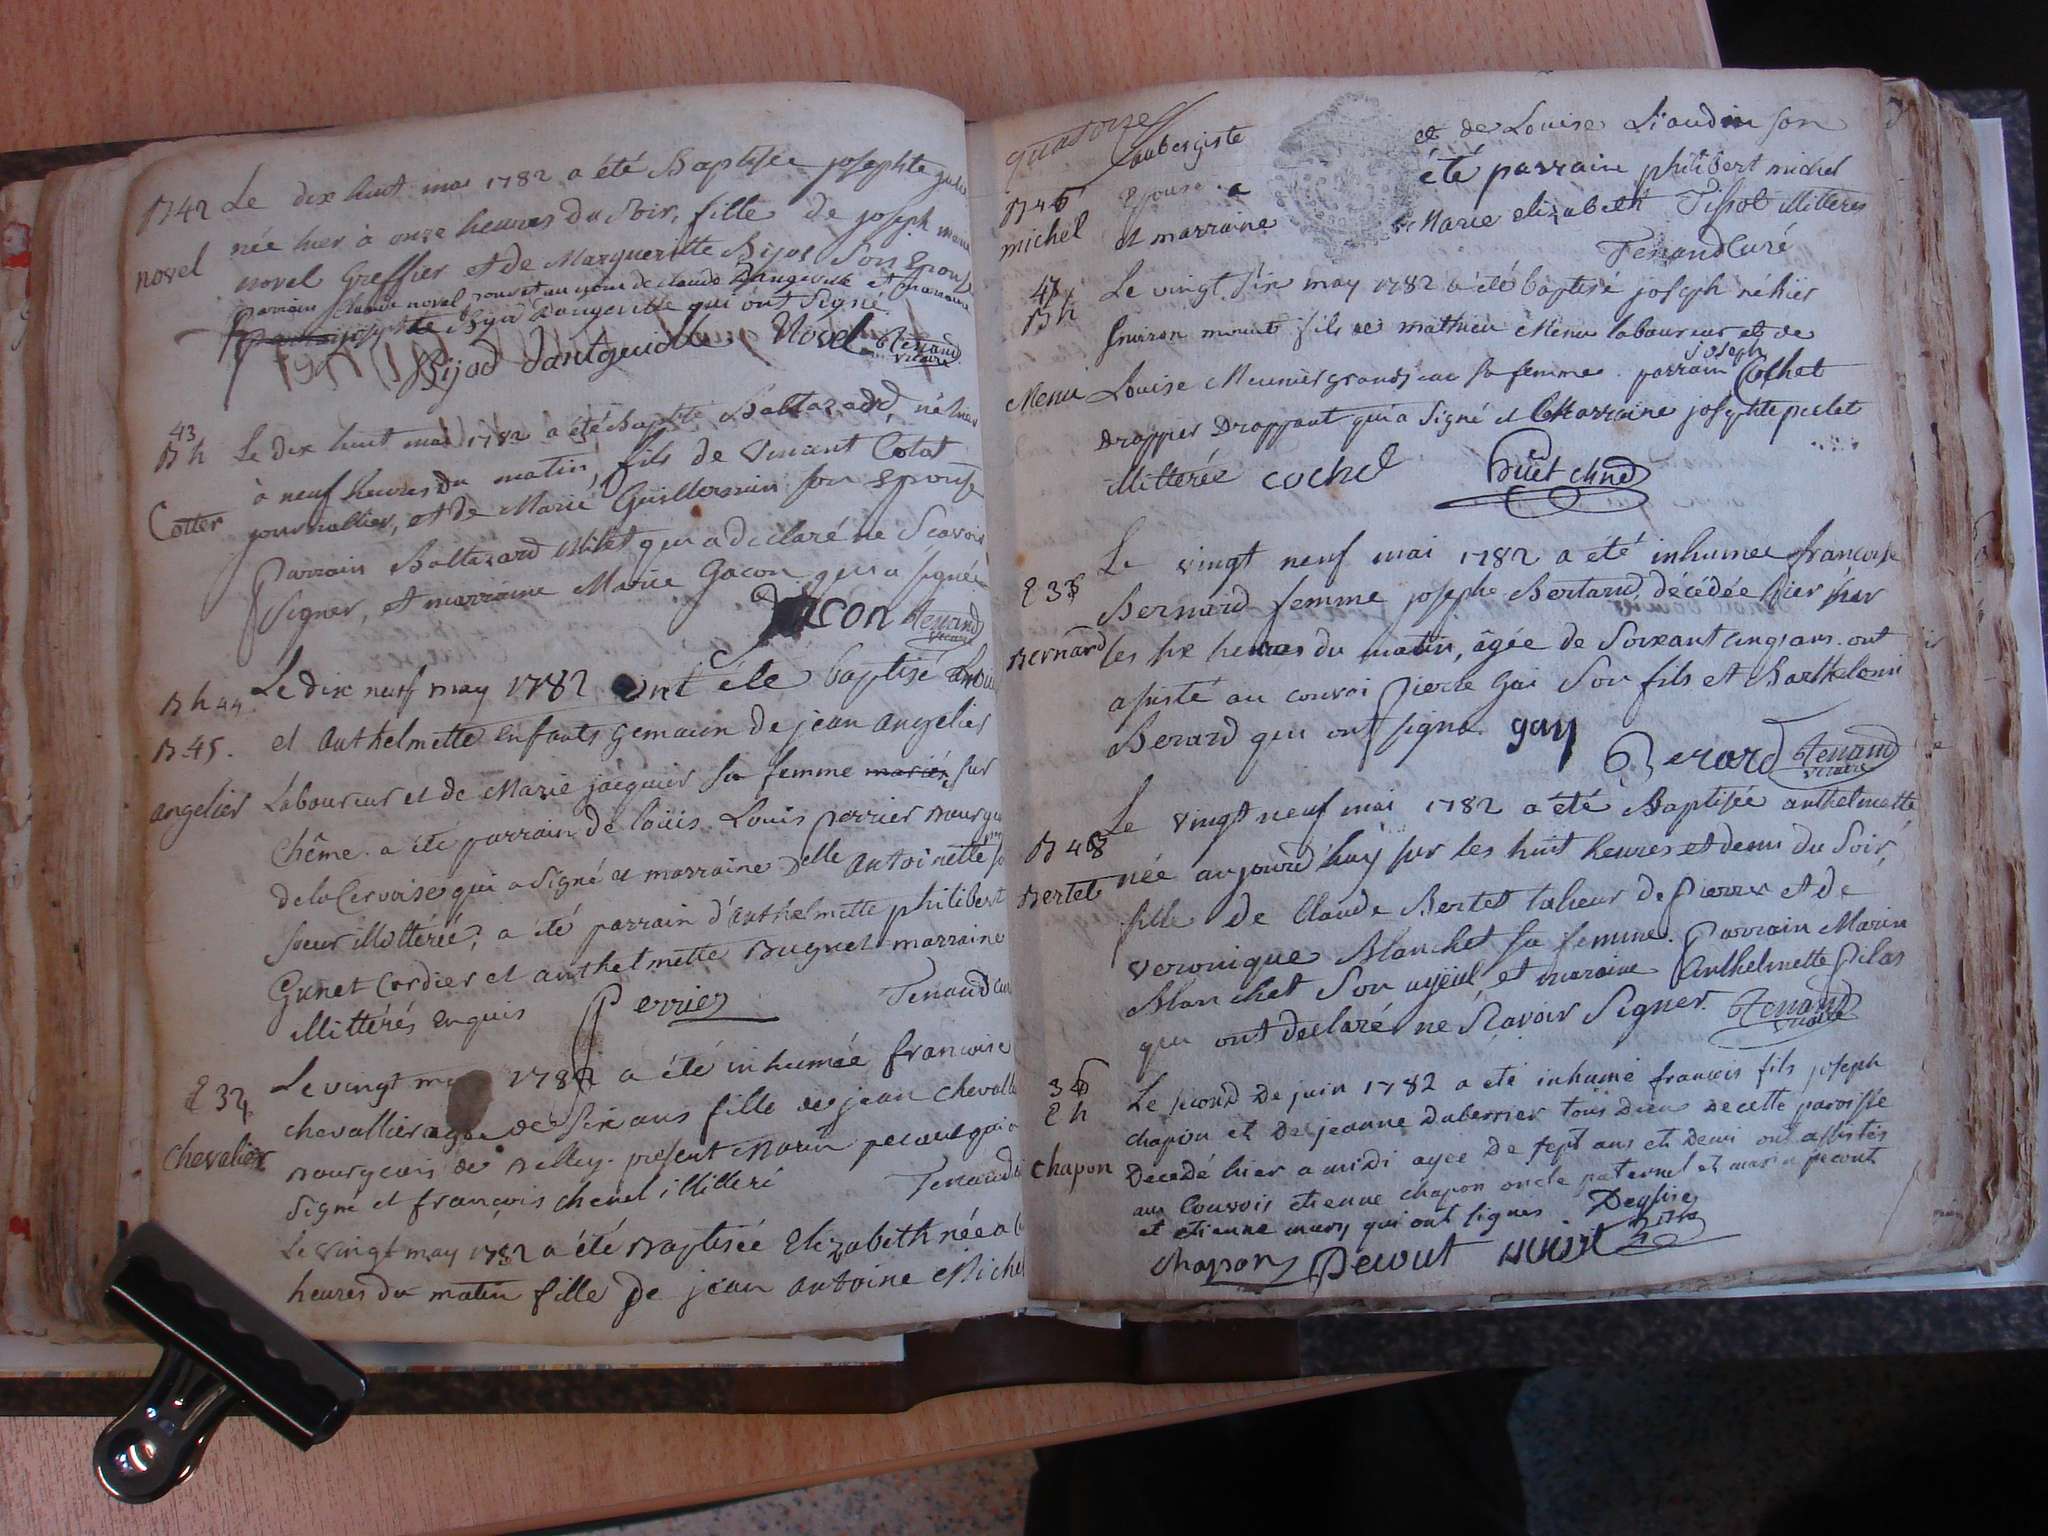 B 42 Le dix huit mai 1782 a été Baptisée josephte
née hier à onze heures du soir, fille de joseph
novel
novel Greffier et de Marguerite Bijos son Epouse
Parrain Claude novel au nom de claude Dangeville et marraine
josephte Bijod Dangeville qui ont Signé
Bijod dantgeville Novel Tenand
vicaire
43
B h Le dix huit mai 1782 a été Baptisé Baltazard, né hier
à neuf heures du matin, fils de Vincent Cotat
Cotter journallier, et de Marie Guillermin son Epouse
Parrain Baltazard Milet qui a déclaré ne Scavoir
Signer, et marraine Marie Gacon qui a signée
Gacon Tenand
vicaire
B h 44 Le dix neuf may 1782 ont été baptisé Louis
B 45. et Anthelmette enfants gemaux de jean angelier
angelier Laboureur et de Marie jacquier sa femme mariés, sur
Chême. a été parrain de louis Louis perrier Bourgeois
de la Cervoise qui a signé et marraine Delle antoinette
soeur illittérée; a été parrain d'anthelmette philibert
Gunet Cordier et anthelmette Bugnet marraine
illittérés Enquis Perrier Tenand curé
E 32 Le vingt may 1782 a été inhumée francoise
chevallier agée de six ans fille de jean chevallier
chevalier Bourgeois de Belley. présent Marin pecout qui a
Signé et françois chenel illittéré Tenand
Le vingt may 1782 a été Baptisée Elizabeth née a
heures du matin fille de jean antoine Michel
quatorze
aubergiste et de Louise Liaudin son
B 46 Epouse. a été parrain philibert michel
michel et marraine Marie elizabeth Tissot illitterés
Tenand Curé
47 Le vingt six may 1782 a été baptisé joseph né hier
B h
Environ minuit fils de mathieu Menu laboureur et de
joseph
Menu Louise Meunier grandjean sa femme. parrain Cochet
Drappier Drappant qui a signé et Marraine josephte pielet
illitterée cochet Huet
Le vingt neuf mai 1782 a été inhumee francoise
E 33 Bernard femme josephe Bertand, décédée hier sur
Bernard les six heures du matin, âgée de Soixant cinq ans. ont
assisté au convoi Pierre Gai Son fils et Barthelemi
Berard qui ont signé. gay
Berard Tenand
vicaire
Le vingt neuf mai 1782 a été Baptisée anthelmette
B 48 née aujourd'huy sur les huit heures et demi du Soir,
Bertet fille de Claude Bertet tailleur de Pierres et de
veronique Blanchet sa femme. Parrain Marin
Blanchet Son ayeul, et maraine Anthelmette Pilas
qui ont declaré ne Scavoir Signer. Tenand
vicaire
34 Le second de juin 1782 a eté inhumé francois fils joseph
E h chapon et de jeanne Duberrier tous deux de cette paroisse
chapon Decedé hier a midi agee de sept ans et Demi ont assistés
au Couvois etienne chapon oncle paternel et marin pecout
et etienne mury qui ont signés Deglise
vicaire
chapon Pecout